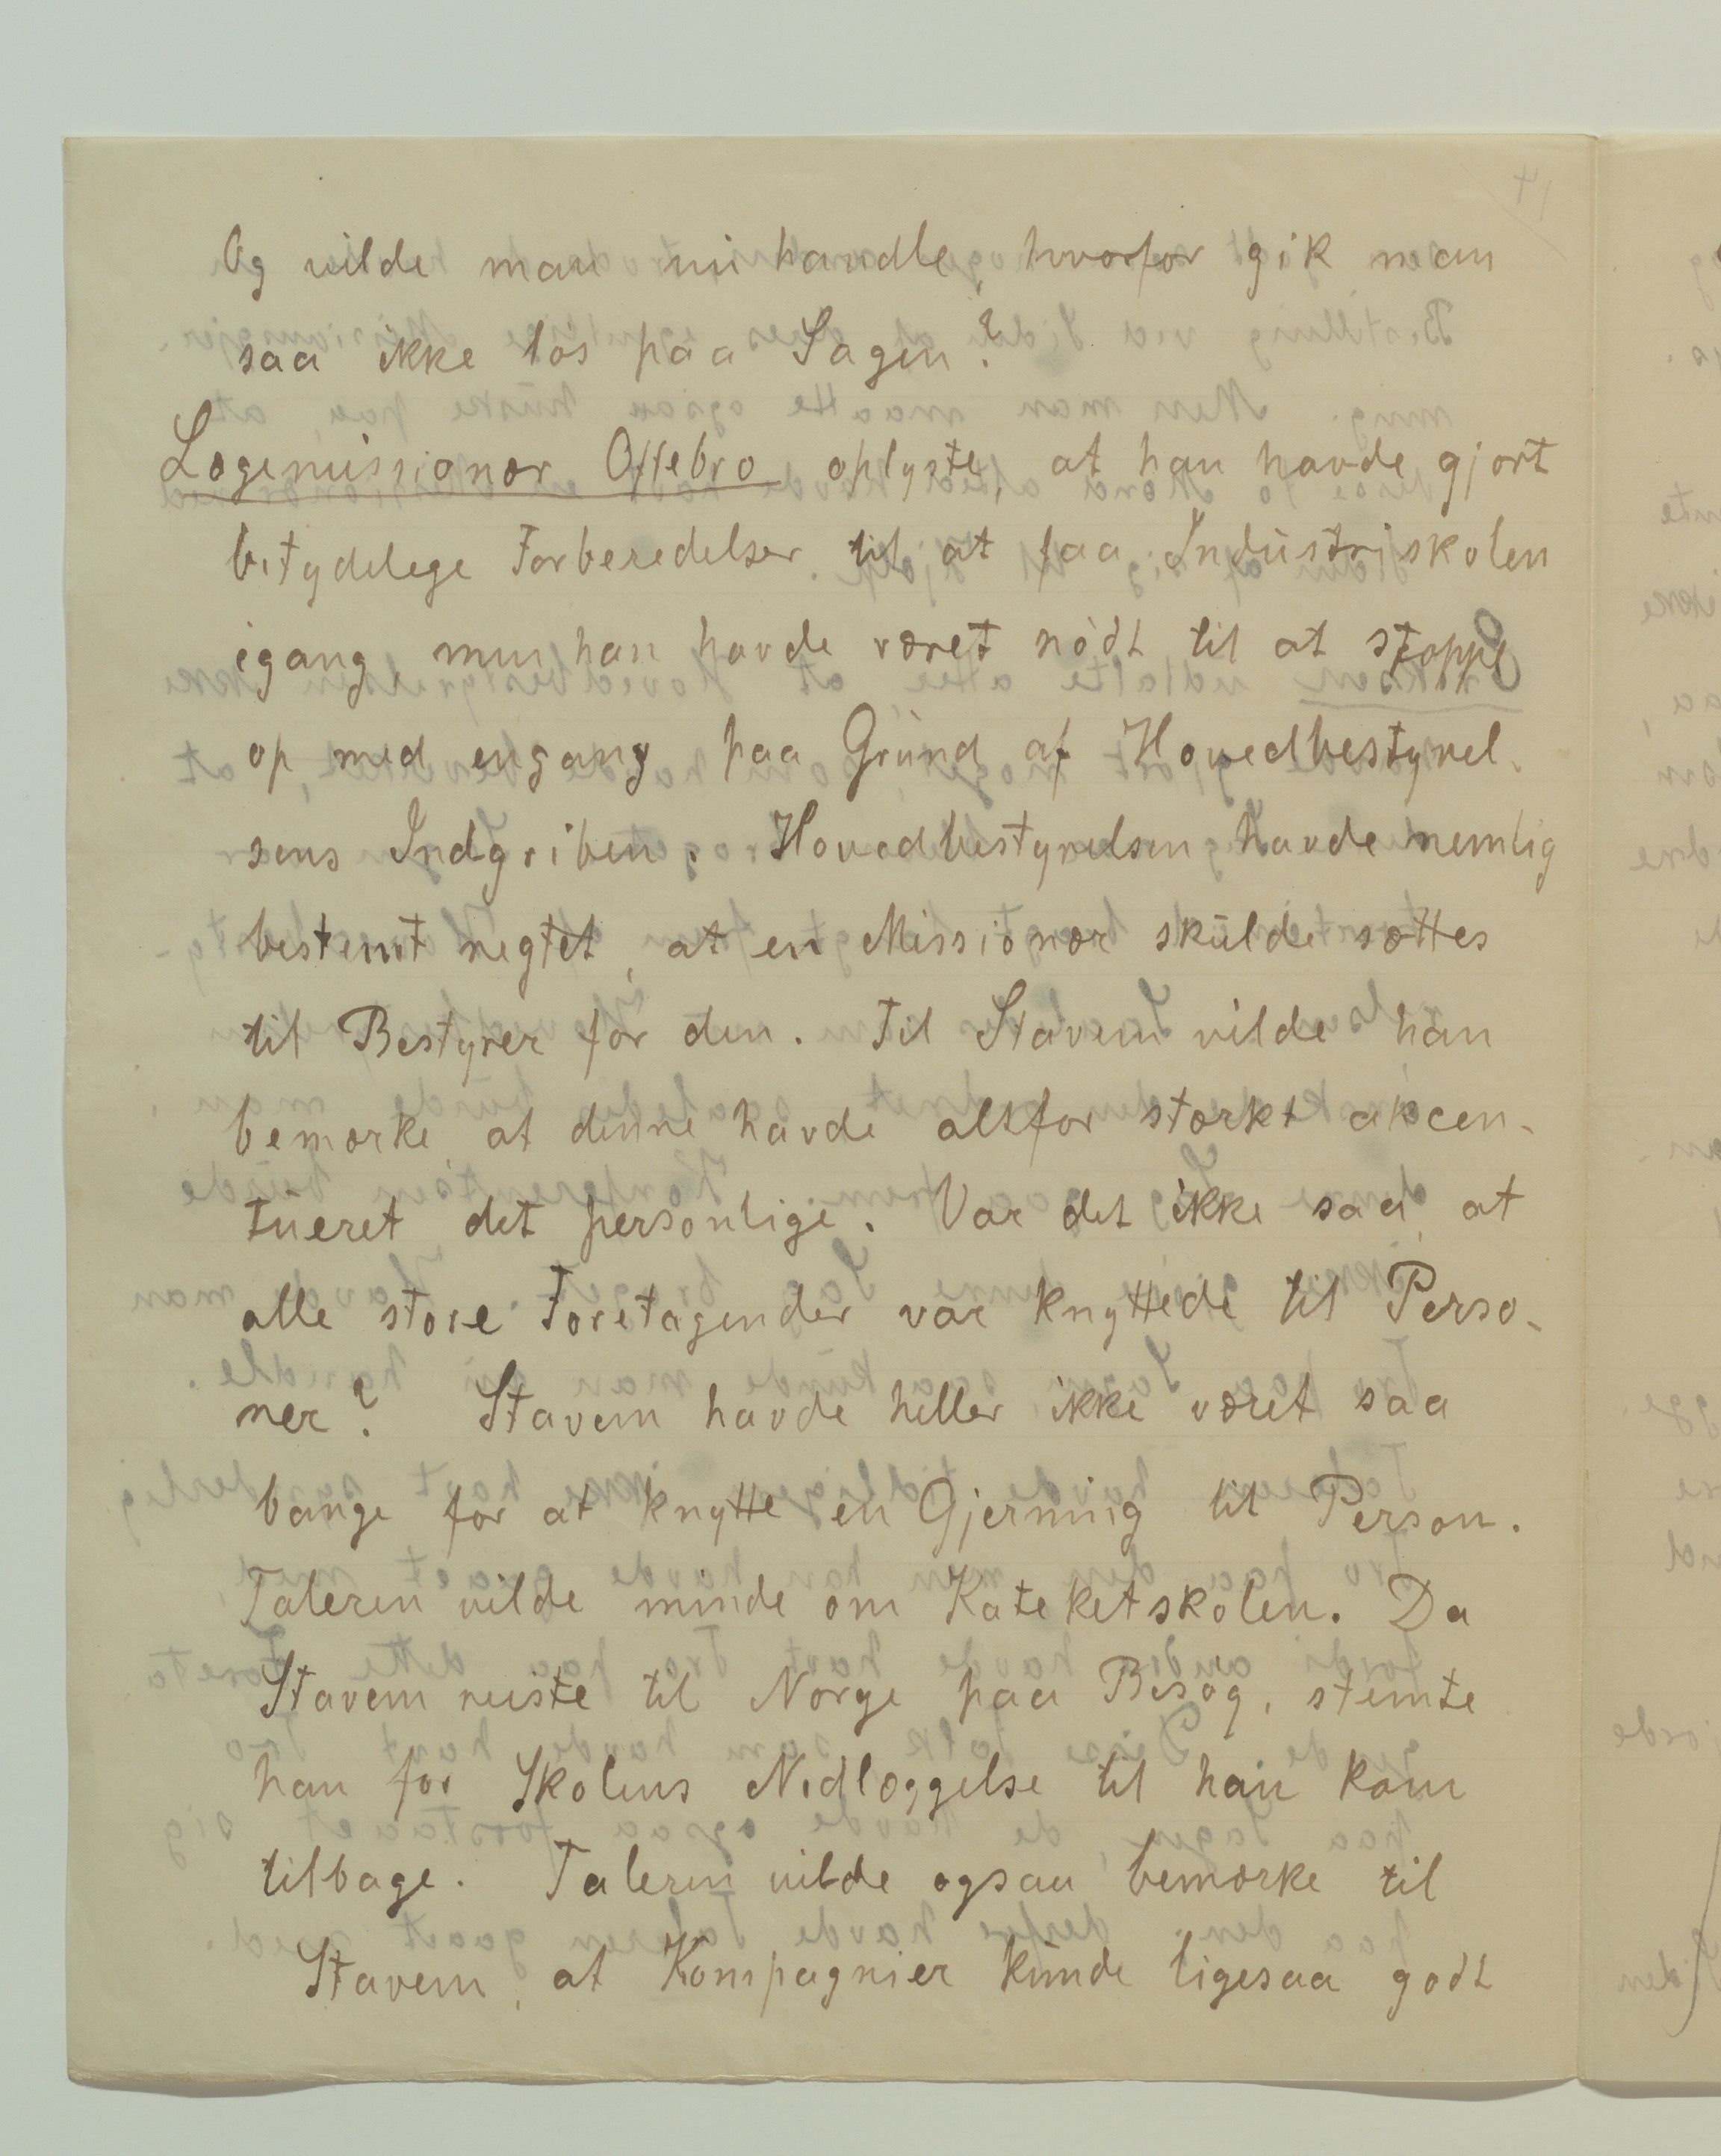 Og vilde man nu handle, hvorfor gik man
saa ikke løs paa Sagen?
Lægemissionær Oftebro oplyste, at han havde gjort
betydelege Forberedelser til at faa Industriskolen
igang, men han havde været nødt til at stoppe
op med engang paa Grund af Hovedbestyrel-
sens Indgriben. Hovedbestyrelsen havde nemlig
bestemt negtet, at en Missionær skulde sættes
til Bestyrer for den. Til Stavem vilde han
bemærke, at denne havde altfor stærkt akcen-
tueret det personlige. Var det ikke saa, at
alle store Foretagender var knyttede til Perso-
ner? Stavem havde heller ikke været saa
bange for at knytte en Gjerning til Person.
Taleren vilde minde om Kateketskolen. Da
Stavem reiste til Norge paa Besøg, stemte
han for Skolens Nedlæggelse til han kom
tilbage. Taleren vilde ogsaa bemærke til
Stavem, at Kompagnier kunde ligesaa godt